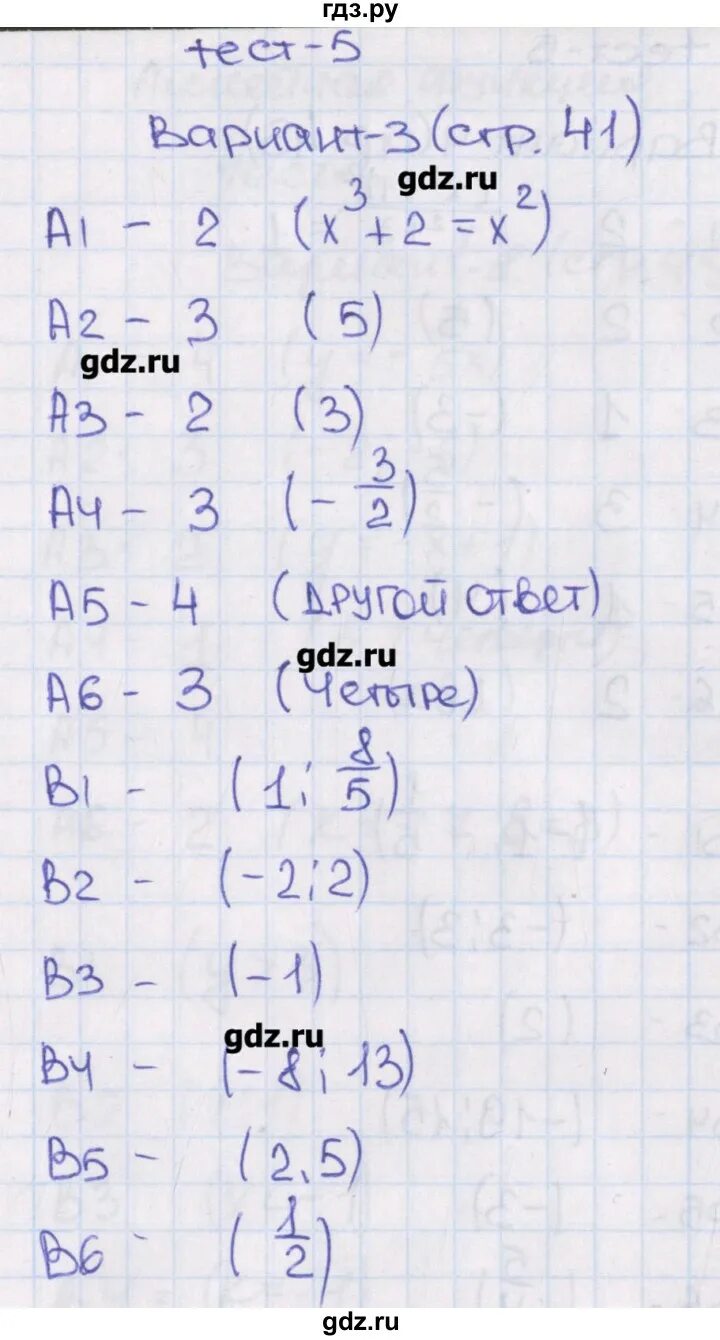 гдз.ру
тест-5
Вариант-3 (стр. 41)
gdz.ru
А1 - 2 (x³ + 2 = x²)
А2 - 3 (5)
gdz.ru
А3 - 2 (3)
А4 - 3 (- 3/2)
А5 - 4 (другой ответ)
gdz.ru
А6 - 3 (Четыре)
В1 - (1; 8/5)
В2 - (-2; 2)
В3 - (-1)
gdz.ru
В4 - (-8; 13)
В5 - (2,5)
В6 - (1/2)
gdz.ru